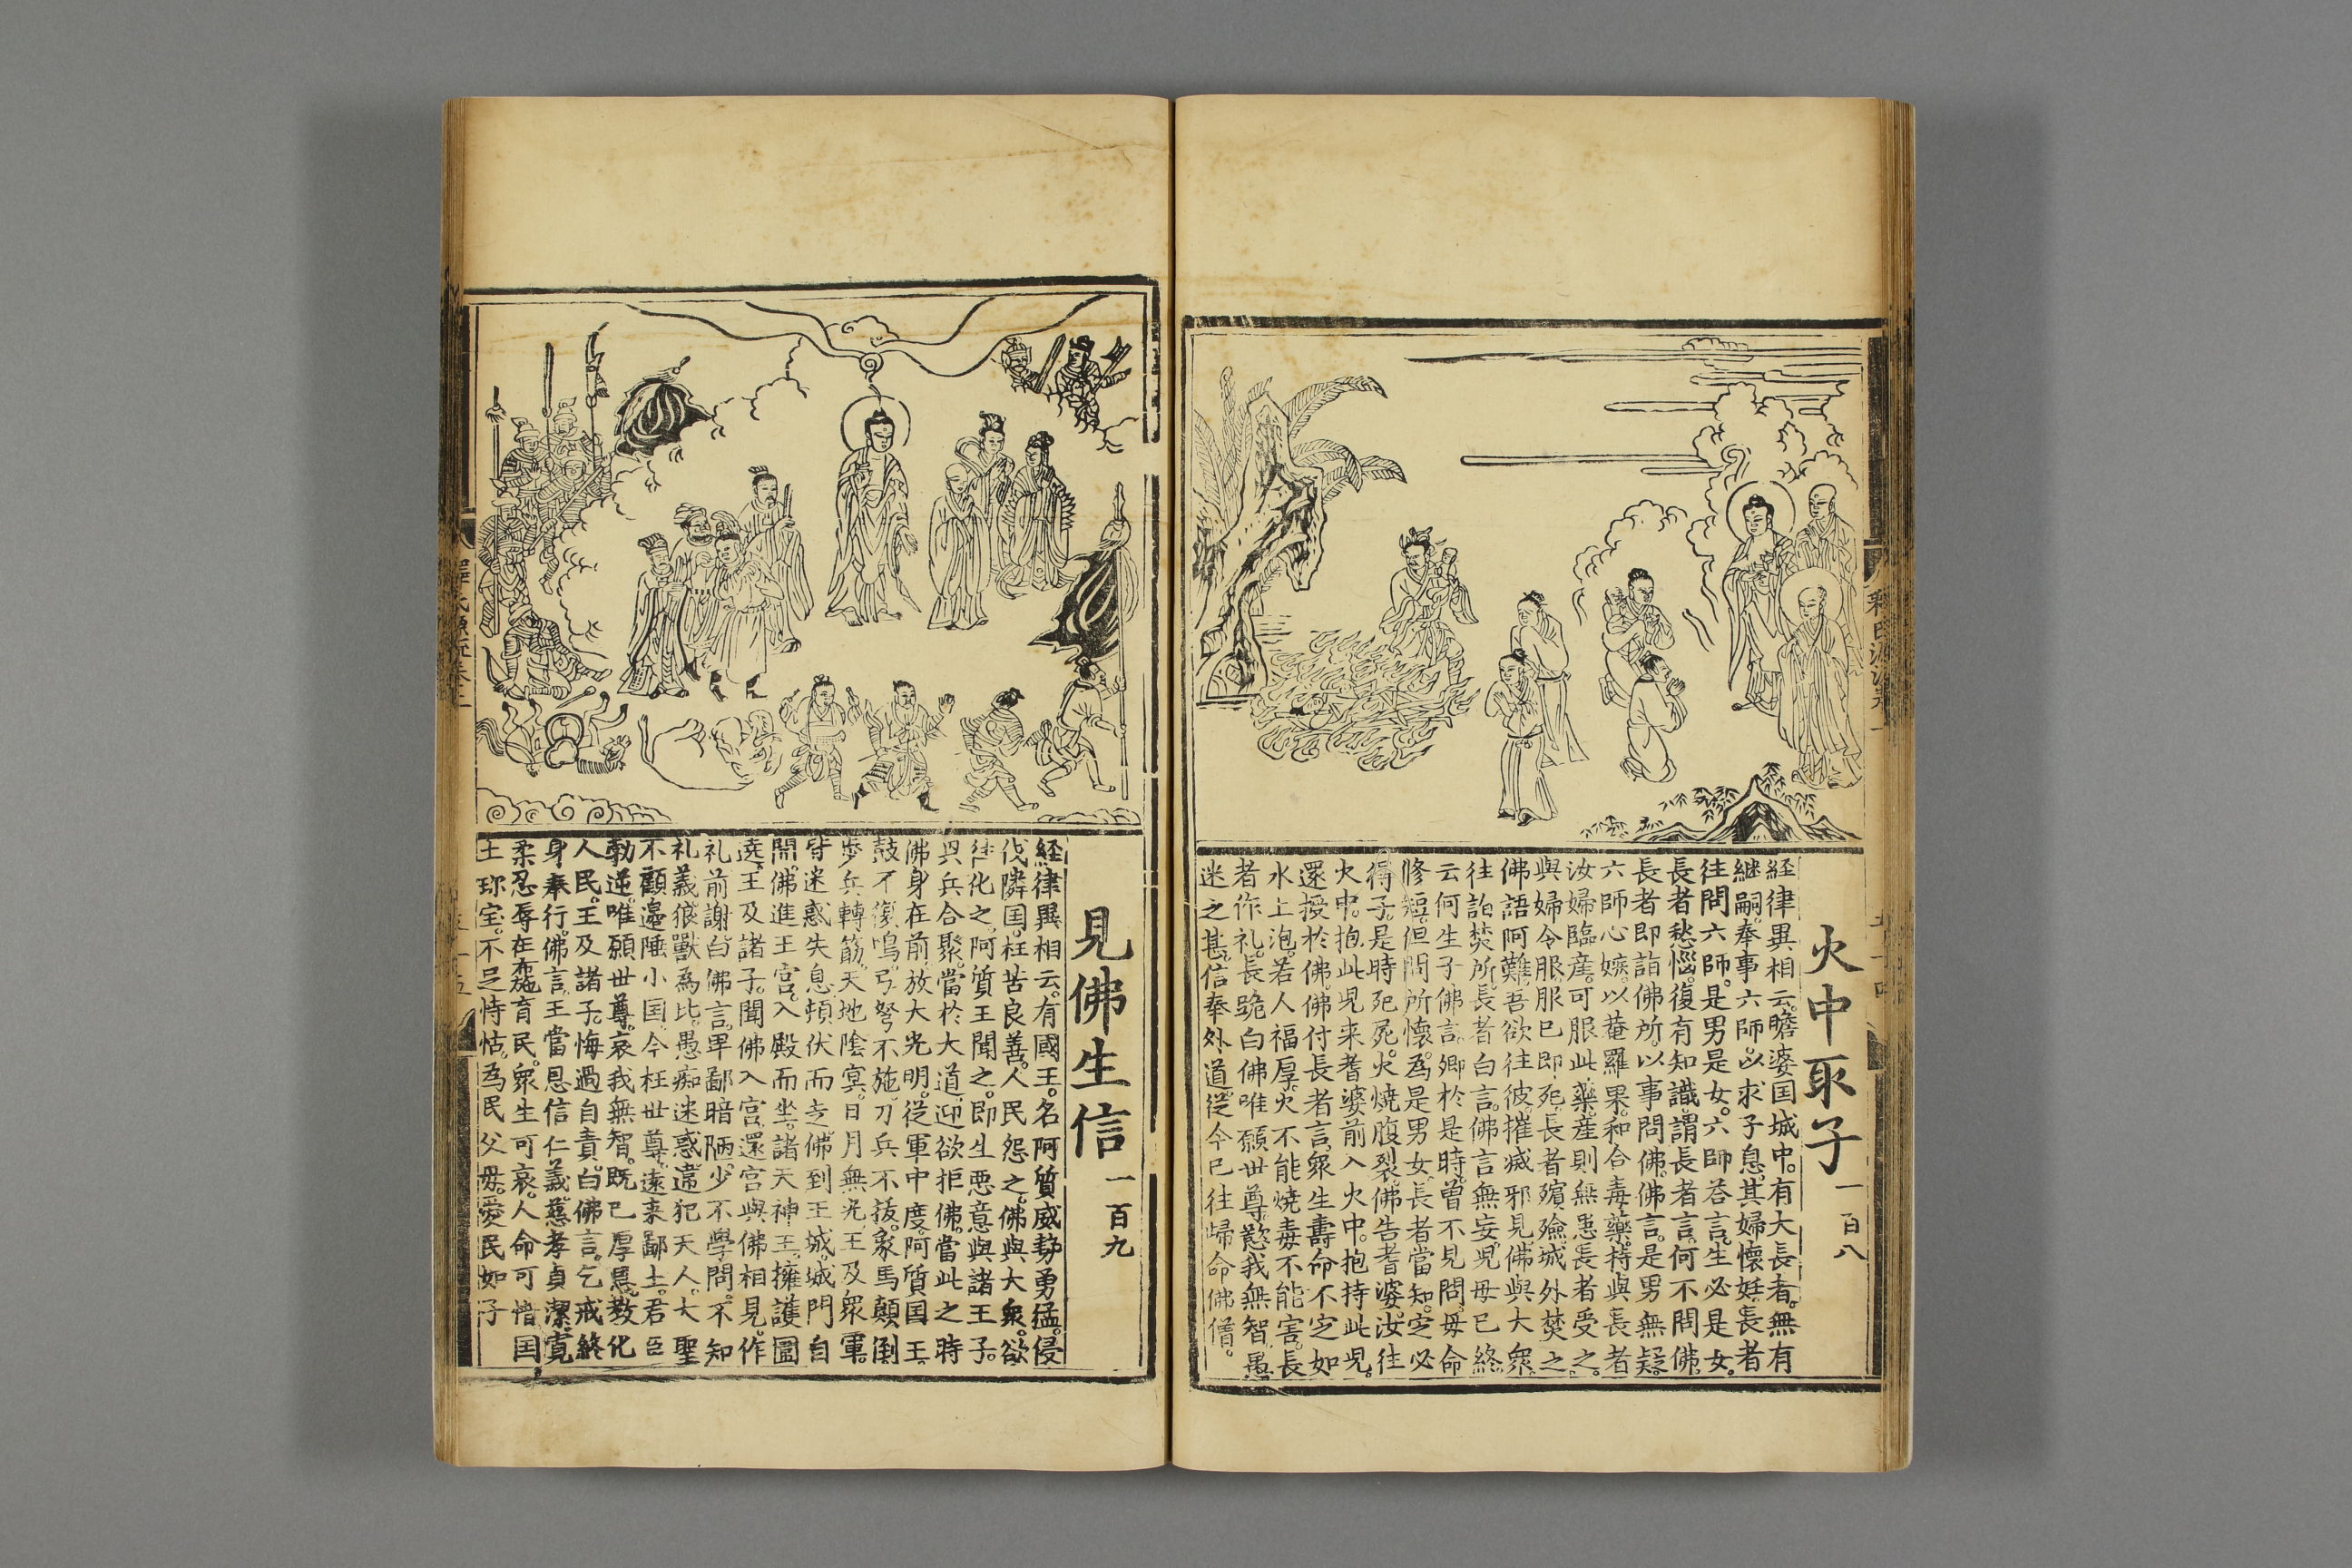 火中取子 一百八
経律異相云。瞻婆国城中。有大長者。無有
継嗣。奉事六師。以求子息。其婦懐姙。長者
往問六師。是男是女。六師荅言。生必是女。
長者愁惱。復有知識。謂長者言。何不問佛。
長者即詣佛所。以事問佛。佛言。是男無疑。
六師心嫉。以菴羅果。和合毒藥。持與長者
汝婦臨産。可服此藥。産則無患。長者受之。
與婦令服。服已即死。長者殯殮。城外焚之。
佛語阿難。吾欲往彼。摧滅邪見。佛與大衆。
往詣焚所。長者白言。佛言無妄。児母已終。
云何生子。佛言。卿於是時。曽不見問。母命
修短。但問所懐。為是男女。長者當知。定必
得子。是時死屍。火燒腹裂。佛告耆婆。汝往
火中。抱此児来。耆婆前入火中。抱持此児。
還授於佛。佛付長者言。衆生壽命不定如
水上泡。若人福厚。火不能燒。毒不能害。長
者作礼。長跪白佛。唯願世尊。愍我無智。愚
迷之甚。信奉外道。従今已往。歸命佛僧。
見佛生信 一百九
経律異相云。有國王。名阿質威勢勇猛。侵
伐隣国。枉苦良善。人民怨之。佛與大衆。欲
往化之。阿質王聞之。即生悪意。與諸王子。
興兵合聚。當於大道。迎欲拒佛。當此之時
佛身在前。放大光明。従軍中度。阿質国王。
鼓不復鳴。弓弩不施。刀兵不抜。象馬顛倒
歩兵轉筋。天地陰冥。日月無光。王及衆軍。
皆迷惑失息。頓伏而走。佛到王城。城門自
開。佛進王宮。入殿而坐。諸天神王。擁護圍
遶。王及諸子。聞佛入宮。還宮與佛相見。作
礼前謝。白佛言。畢鄙暗陋。少不學問。不知
礼義。狼獸為比。愚痴迷惑。違犯天人。大聖
不顧邉陲小国。今枉世尊。遠来鄙土。君臣
勃逆。唯願世尊。哀我無智。既已厚恩。教化
人民。王及諸子。悔過自責。白佛言。乞戒終
身奉行。佛言。王當恩信仁義。慈孝貞潔。寛
柔忍辱。在布施。育民。衆生可哀。人命可惜。国
土珎宝。不足恃怙。為民父毋。愛民如子